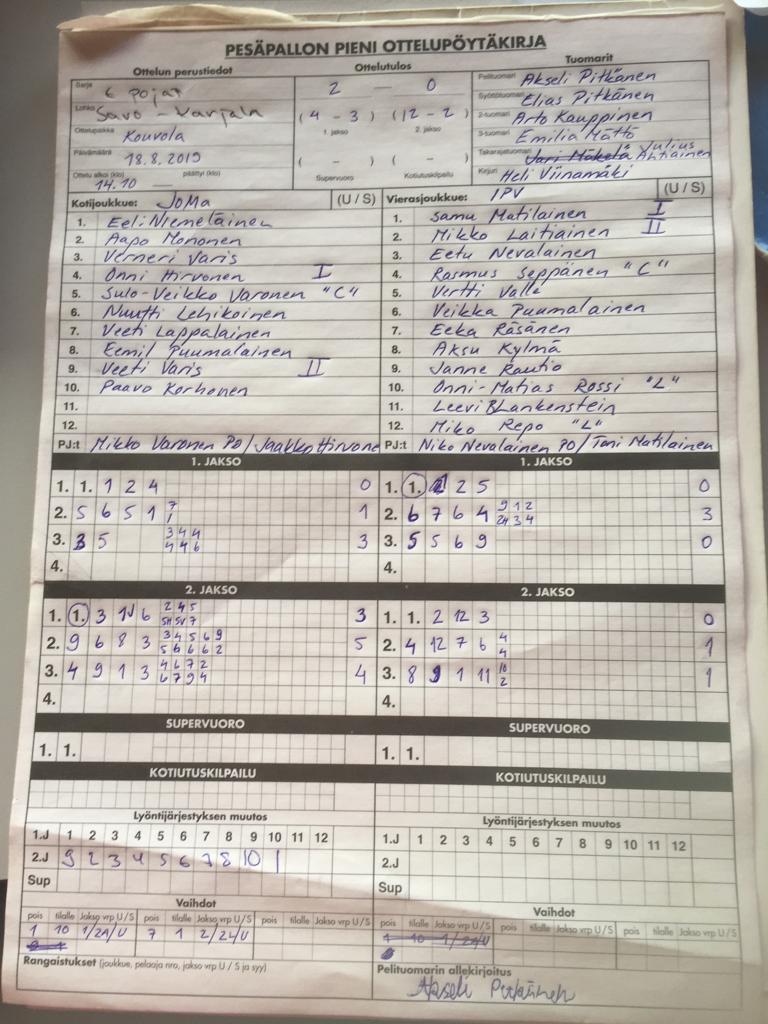 PESÄPALLON PIENI OTTELUPÖYTÄKIRJA
Ottelun perustiedot
Ottelutulos
Tuomarit
Sarja 6 pojat
2 — 0
Pelituomari Akseli Pitkänen
Lohko Savo - Karjala
(4 - 3) (12 - 2)
1. jakso 2. jakso
Syöttötuomari Elias Pitkänen
2-tuomari Arto Kauppinen
Ottelupaikka Kouvola
3-tuomari Emilia Mättö
Päivämäärä 18.8.2019
( - ) ( - )
Takarajatuomari Jari Mäkelä Julius Ahtiainen
Ottelu alkoi (klo) päättyi (klo)
14.10 —
Supervuoro Kotiutuskilpailu
Kirjuri Heli Viinamäki
Kotijoukkue: JoMa (U / S)
Vierasjoukkue: IPV (U / S)
1. Eeli Niemeläinen
1. Samu Matilainen I
2. Aapo Mononen
2. Mikko Laitiainen II
3. Verneri Varis
3. Eetu Nevalainen
4. Onni Hirvonen I
4. Rasmus Seppänen "C"
5. Sulo-Veikko Varonen "C"
5. Vertti Valle
6. Nuutti Lehikoinen
6. Veikka Puumalainen
7. Veeti Lappalainen
7. Eeka Räsänen
8. Eemil Puumalainen
8. Aksu Kylmä
9. Veeti Varis II
9. Janne Rautio
10. Paavo Korhonen
10. Onni-Matias Rossi "L"
11.
11. Leevi Blankenstein
12.
12. Miko Repo "L"
PJ:t Mikko Varonen PO / Jaakko Hirvone
PJ:t Niko Nevalainen PO / Toni Matilainen
1. JAKSO
1. JAKSO
1. 1. 1 2 4 0
1. 1. 2 5 0
2. 5 6 5 1 7 1
1
2. 6 7 6 4 9 1 2 3
24 3 4
3. 3 5 3 4 4 3
4 4 6
3. 5 5 6 9 0
4.
4.
2. JAKSO
2. JAKSO
1. 1. 3 10 6 2 4 5 3
5H 5V 7
1. 1. 2 12 3 0
2. 9 6 8 3 3 4 5 6 9 5
5 6 6 6 2
2. 4 12 7 6 4 1
4
3. 4 9 1 3 4 6 7 2 4
6 7 9 4
3. 8 9 1 11 10 1
2
4.
4.
SUPERVUORO
SUPERVUORO
1. 1.
1. 1.
KOTIUTUSKILPAILU
KOTIUTUSKILPAILU
Lyöntijärjestyksen muutos
Lyöntijärjestyksen muutos
1.J 1 2 3 4 5 6 7 8 9 10 11 12
1.J 1 2 3 4 5 6 7 8 9 10 11 12
2.J 9 2 3 4 5 6 7 8 10 1
2.J
Sup
Sup
Vaihdot
Vaihdot
pois tilalle Jakso vrp U/S pois tilalle Jakso vrp U/S pois tilalle Jakso vrp U/S
pois tilalle Jakso vrp U/S pois tilalle Jakso vrp U/S pois tilalle Jakso vrp U/S
1 10 1/2A/U 7 1 2/2U/U
1 10 1/2A/U
Rangaistukset (joukkue, pelaaja nro, jakso vrp U / S ja syy)
Pelituomarin allekirjoitus
Akseli Pitkänen